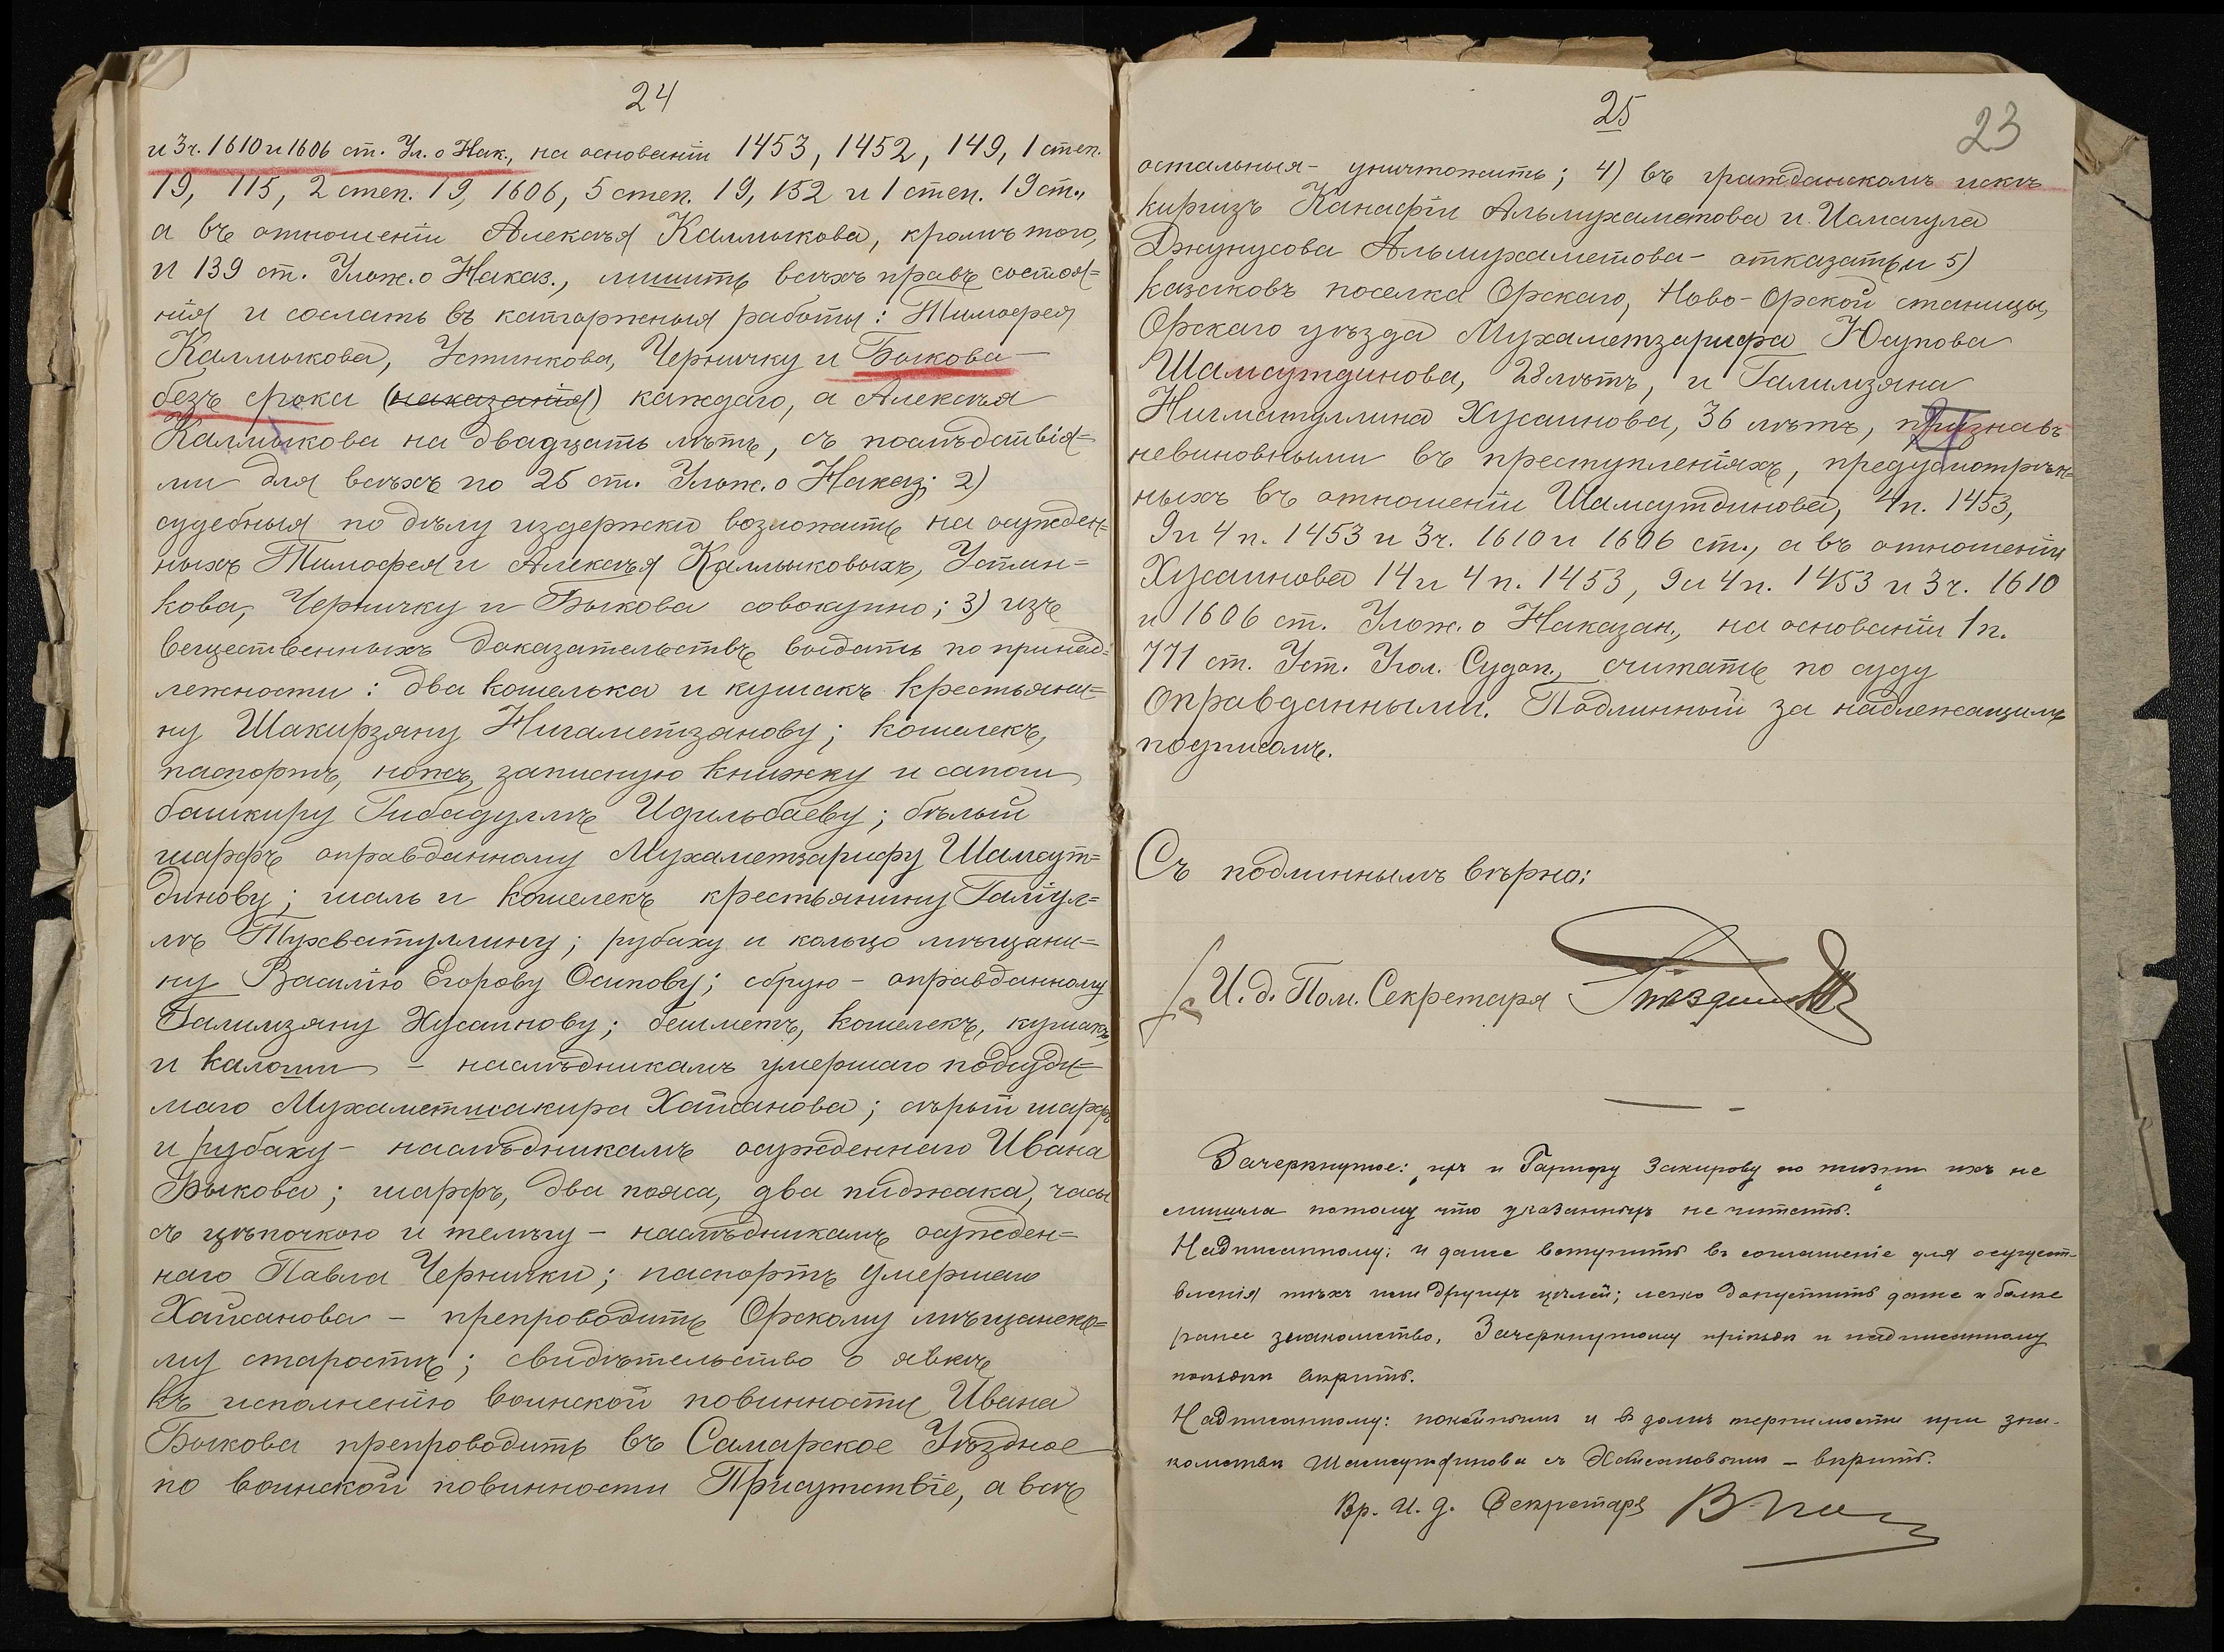 24
и 3ч. 1610 и 1606 ст. Ул. о Нак., на основаніи 1453, 1452, 149, 1 степ.
19, 115, 2 степ. 19, 1606, 5 степ. 19, 152 и 1 степ. 19 ст.,
а въ отношеніи Алексѣя Калмыкова, кромѣ того,
и 139 ст. Улож. о Наказ., лишить всѣхъ правъ состоя=
нія и сослать въ каторжныя работы: Тимофея
Калмыкова, Устинкова, Черничку и Быкова
безъ срока (наказанія) каждаго, а Алексѣя
Калмыкова на двадцать лѣтъ, съ послѣдствія=
ми для всѣхъ по 25 ст. Улож. о Наказ; 2)
судебныя по дѣлу издержки возложить на осужден=
ныхъ Тимофея и Алексѣя Калмыковыхъ, Устин=
кова, Черничку и Быкова совокупно; 3) изъ
вещественныхъ доказательствъ выдать по принад=
лежности: два кошелька и кушакъ крестьяни=
ну Шакирзяну Нигаметзянову; кошелекъ,
паспортъ, ножъ, записную книжку и сапоги
башкиру Гибадуллѣ Идильбаеву; бѣлый
шарфъ оправданному Мухаметзарифу Шамсут=
динову; шаль и кошелекъ крестьянину Галіул=
лѣ Тухватуллину; рубаху и кольцо мѣщани=
ну Василію Егорову Осипову; сбрую - оправданному
Галимзяну Хусаинову; бешметъ, кошелекъ, кушакъ
и калоши - наслѣдникамъ умершаго подсуди=
маго Мухаметшакира Хайсанова; сѣрый шарфъ
и рубаху - наслѣдникамъ осужденнаго Ивана
Быкова; шарфъ, два пояса, два пиджака, часы
съ цѣпочкою и телѣгу - наслѣдникамъ осужден=
наго Павла Чернички; паспортъ умершаго
Хайсанова - препроводить Орскому мѣщанско=
му старостѣ; свидѣтельство о явкѣ
къ исполненію воинской повинности Ивана
Быкова препроводить въ Самарское Уѣздное
по воинской повинности Присутствіе, а всѣ
25
23
остальныя - уничтожить; 4) въ гражданскомъ искѣ
киргизъ Канафіи Альмухаметова и Исмагула
Джунусова Альмухаметова - отказать и 5)
казаковъ поселка Орскаго, Ново-Орской станицы,
Орскаго уѣзда Мухаметзарифа Юсупова
Шамсутдинова, 28 лѣтъ, и Галимзяна
Нигматуллина Хусаинова, 36 лѣтъ, признавъ
невиновными въ преступленіяхъ, предусмотрѣн=
ныхъ въ отношеніи Шамсутдинова, 4 п. 1453,
9 и 4 п. 1453 и 3ч. 1610 и 1606 ст., а въ отношеніи
Хусаинова 14 и 4 п. 1453, 9 и 4 п. 1453 и 3ч. 1610
и 1606 ст. Улож. о Наказан., на основаніи 1 п.
771 ст. Уст. Угол. Судоп., считать по суду
оправданными. Подлинный за надлежащимъ
подписомъ.
Съ подлиннымъ вѣрно:
И. д. Пом. Секретаря
Зачеркнутое: и Гарифу Закирову но жизни ихъ не
лишила потому что указанныхъ не читать.
Надписанному: и даже вступить въ соглашеніе для осущест-
вленія тѣхъ или другихъ цѣлей; легко допустить даже и болѣе
ранее знакомство. Зачеркнутому и надписанному
вѣрить.
Надписанному: покойнымъ и въ домѣ терпимости при зна-
комствѣ Шамсутдинова съ Хайсановымъ - вѣрить.
Вр. И. д. Секретаря